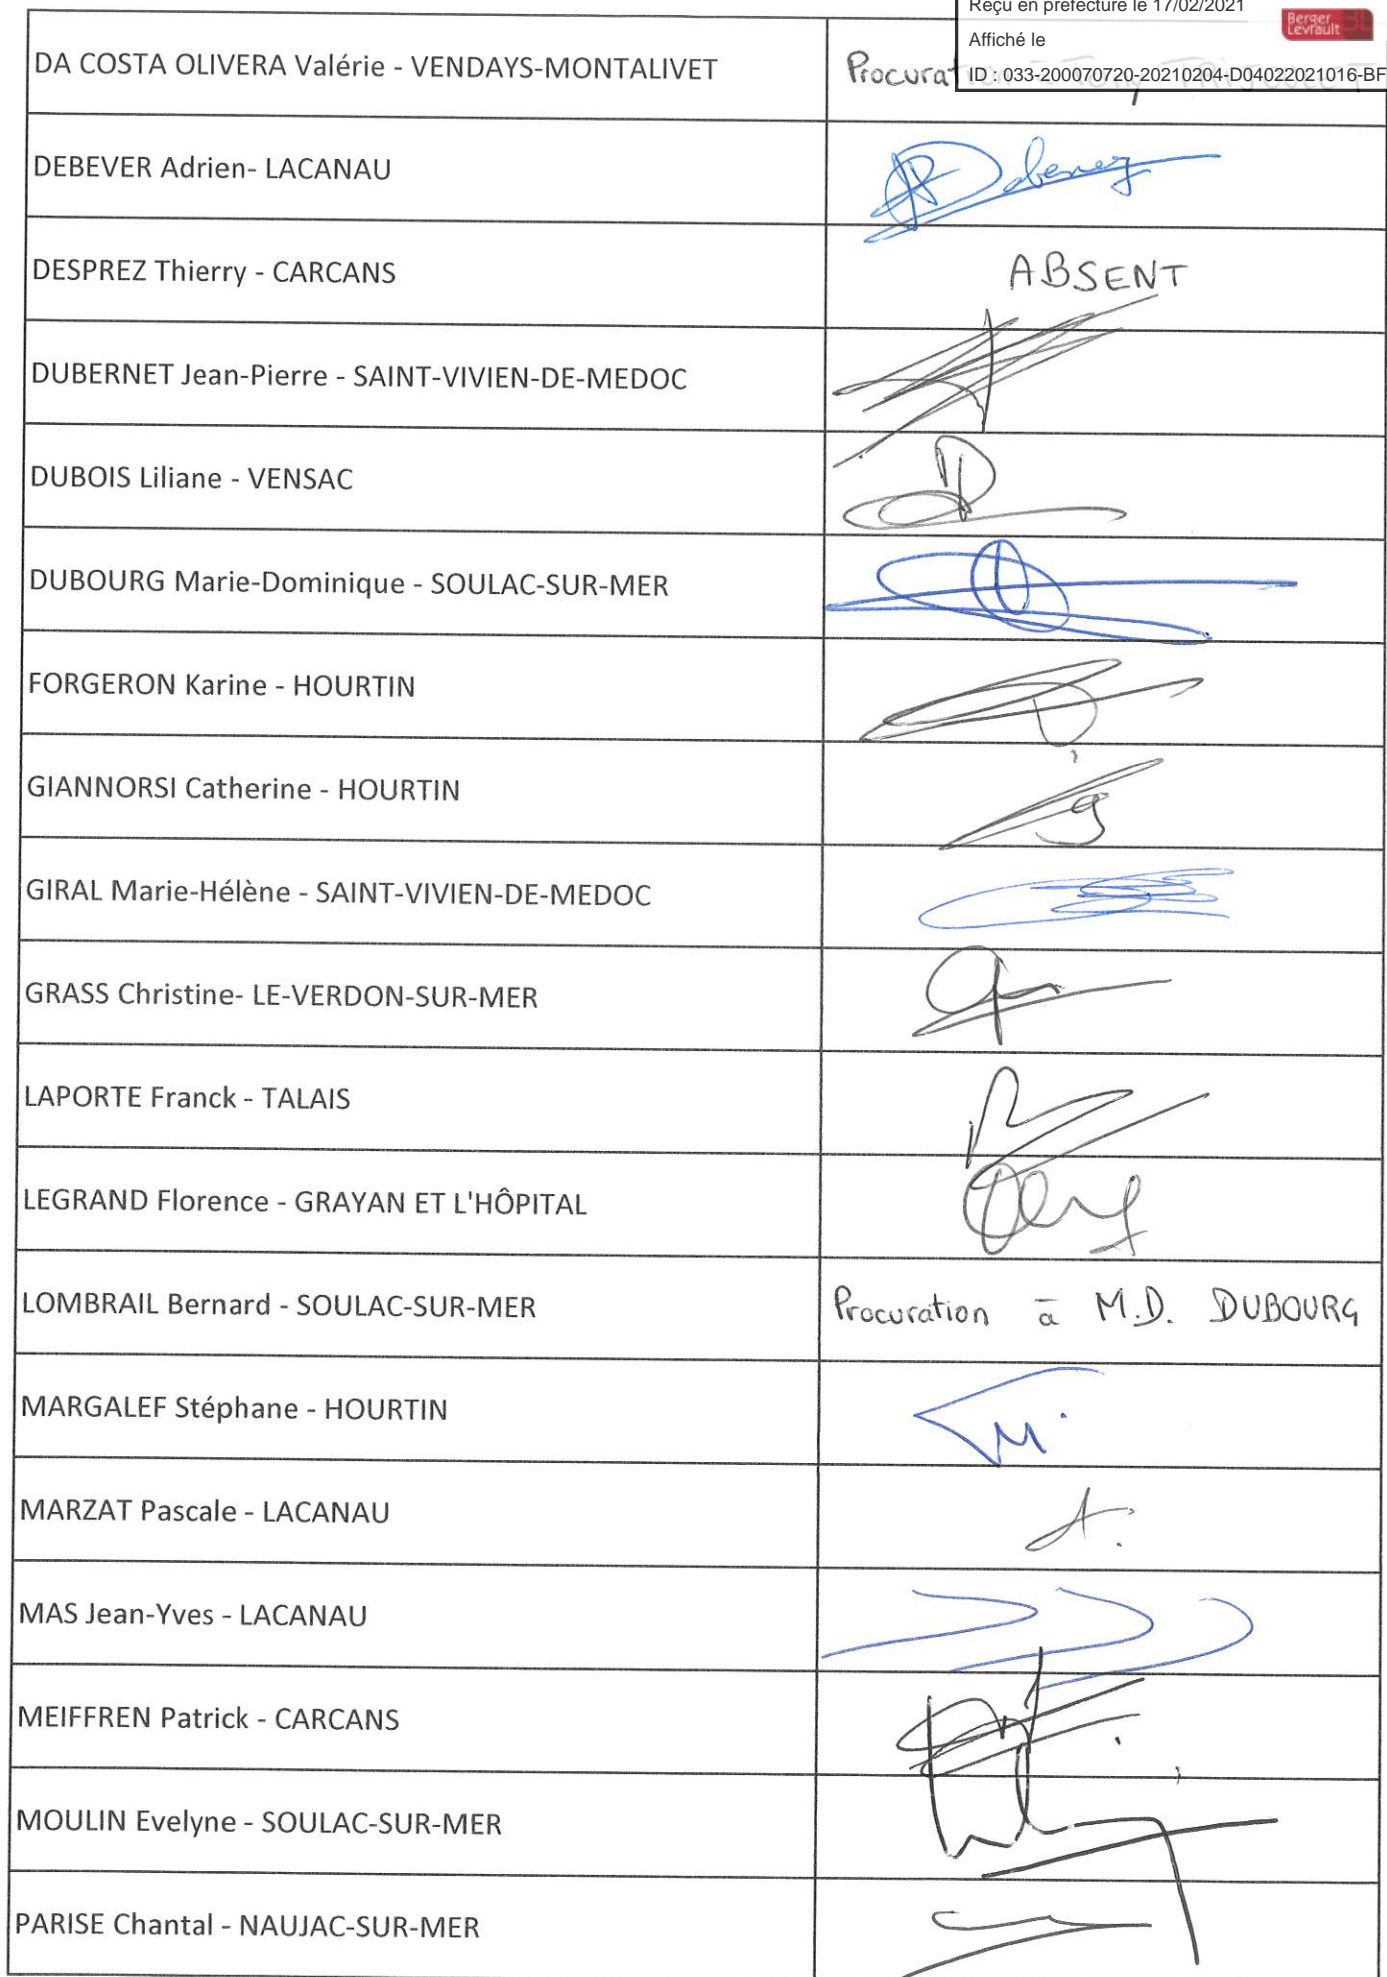 Reçu en préfecture le 17/02/2021
Berger
Levrault
Affiché le
ID : 033-200070720-20210204-D04022021016-BF
DA COSTA OLIVERA Valérie - VENDAYS-MONTALIVET
DEBEVER Adrien- LACANAU
DESPREZ Thierry - CARCANS ABSENT
DUBERNET Jean-Pierre - SAINT-VIVIEN-DE-MEDOC
DUBOIS Liliane - VENSAC
DUBOURG Marie-Dominique - SOULAC-SUR-MER
FORGERON Karine - HOURTIN
GIANNORSI Catherine - HOURTIN
GIRAL Marie-Hélène - SAINT-VIVIEN-DE-MEDOC
GRASS Christine- LE-VERDON-SUR-MER
LAPORTE Franck - TALAIS
LEGRAND Florence - GRAYAN ET L'HÔPITAL
LOMBRAIL Bernard - SOULAC-SUR-MER Procuration à M.D. DUBOURG
MARGALEF Stéphane - HOURTIN
MARZAT Pascale - LACANAU
MAS Jean-Yves - LACANAU
MEIFFREN Patrick - CARCANS
MOULIN Evelyne - SOULAC-SUR-MER
PARISE Chantal - NAUJAC-SUR-MER